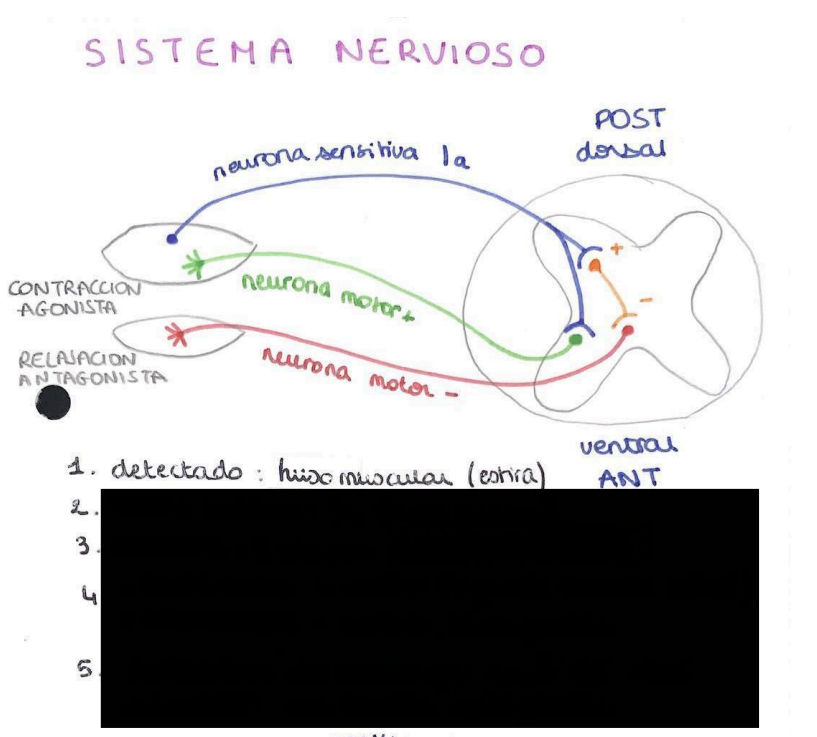 SISTEMA NERVIOSO
POST
dorsal
neurona sensitiva Ia
+
CONTRACCION
AGONISTA
neurona motor+
-
RELAJACION
ANTAGONISTA
neurona motor -
ventral
ANT
1. detectado : huso muscular (estira)
2.
3.
4
5.